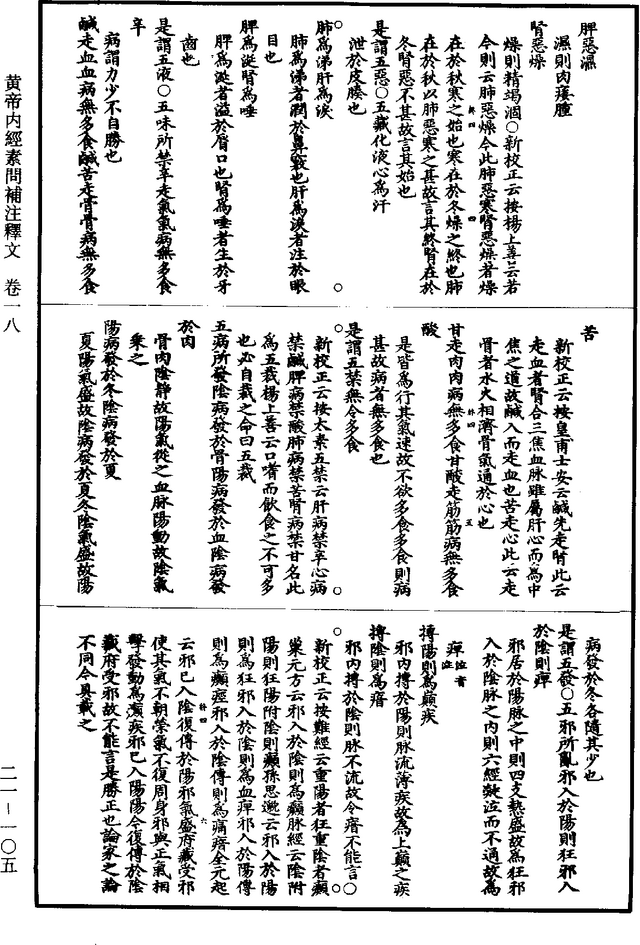 黄帝内經素問補注釋文　卷一八
脾惡濕
濕則肉痿腫
腎惡燥
燥則精竭涸○新校正云按楊上善云若
余則云肺惡燥今此肺惡寒腎惡燥者燥
在於秋寒之始也寒在於冬燥之終也肺
在於秋以肺惡寒之甚故言其終腎在於
冬腎惡不甚故言其始也
是謂五惡○五藏化液心為汗
泄於皮腠也
肺為涕肝為淚
肺為涕者潤於鼻竅也肝為淚者注於眼
目也
脾為涎腎為唾
脾為涎者溢於脣口也腎為唾者生於牙
齒也
是謂五液○五味所禁辛走氣氣病無多食
辛
病謂力少不自勝也
鹹走血血病無多食鹹苦走骨骨病無多食
苦
新校正云按皇甫士安云鹹先走腎此云
走血者腎合三焦血脉雖屬肝心而為中
焦之道故鹹入而走血也苦走心此云走
骨者水火相濟骨氣通於心也
甘走肉肉病無多食甘酸走筋筋病無多食
酸
是皆為行其氣速故不欲多食多食則病
甚故病者無多食也
是謂五禁無令多食
新校正云按太素五禁云肝病禁辛心病
禁鹹脾病禁酸肺病禁苦腎病禁甘名此
為五裁楊上善云口嗜而飲食之不可多
也必自裁之命曰五裁
五病所發陰病發於骨陽病發於血陰病發
於肉
骨肉陰靜故陽氣從之血脉陽動故陰氣
乘之
陽病發於冬陰病發於夏
夏陽氣盛故陰病發於夏冬陰氣盛故陽
病發於冬各隨其少也
是謂五發○五邪所亂邪入於陽則狂邪入
於陰則痺
邪居於陽脉之中則四支熱盛故為狂邪
入於陰脉之内則六經凝泣而不通故為
痺
搏陽則為巔疾
邪内搏於陽則脉流薄疾故為上巔之疾
搏陰則為瘖
邪内搏於陰則脉不流故令瘖不能言○
新校正云按難經云重陽者狂重陰者癲
巢元方云邪入於陰則為癲脉經云陰附
陽則狂陽附陰則癲孫思邈云邪入於陽
則為狂邪入於陰則為血痺邪入於陽傳
則為癲痙邪入於陰傳則為痛瘖全元起
云邪已入陰復傳於陽邪氣盛府藏受邪
使其氣不朝榮氣不復周身邪與正氣相
擊發動為癲疾邪已入陽陽今復傳於陰
藏府受邪故不能言是勝正也諸家之論
不同今具載之
二一－一〇五